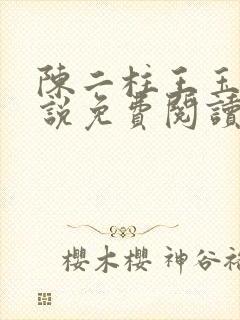 陳二柱王玉
說免費閱讀
櫻木櫻 神谷裕